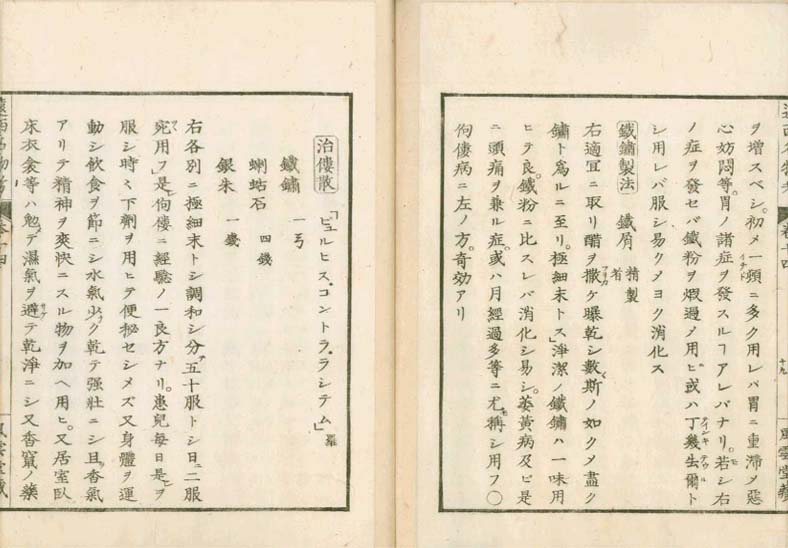 ヲ増スベシ。初メ一頓ニ多ク用レバ胃ニ重滞メ惡
心妨悶等。胃ノ諸症ヲ發スルヿアレバナリ。若シ右
ノ症ヲ發セバ鐵粉ヲ煆過メ用ヒ或ハ丁幾生爾ト
シ用レバ服シ易クメヨク消化ス
鐵鏽製法 鐵屑 精製者
右適宜ニ取リ醋ヲ撒ケ曝乾シ數斯ノ如クメ盡ク
鏽ト爲ルニ至リ。極細末トス」淨潔ノ鐵鏽ハ一味用
ヒテ良。鐵粉ニ比スレバ消化シ易シ。萎黄病及ビ是
ニ頭痛ヲ乗ル症。或ハ月經過多等ニ尤稱シ用フ〇
佝僂病ニ左ノ方。奇効アリ
十九
風雲堂藏
治僂散 「ピュルヒス。コントラ。ラシテム」羅
鐵鏽 一弓
蜊蛄石 四錢
銀朱 一錢
右各別ニ極細末トシ調和シ分五十服トシ日ニ二服
宛用フ」是佝僂ニ經驗ノ一良方ナリ。患兒毎日是ヲ
服シ時々下劑ヲ用ヒテ便秘セシメズ又身體ヲ運
動シ飲食ヲ節ニシ水氣少ク乾テ强壯ニシ且香氣
アリテ精神ヲ爽快ニスル物ヲ加ヘ用ヒ。又居室臥
床衣衾等ハ勉テ濕氣ヲ避テ乾淨ニシ又香竄ノ藥
遠西名物考
卷十四
風雲堂藏